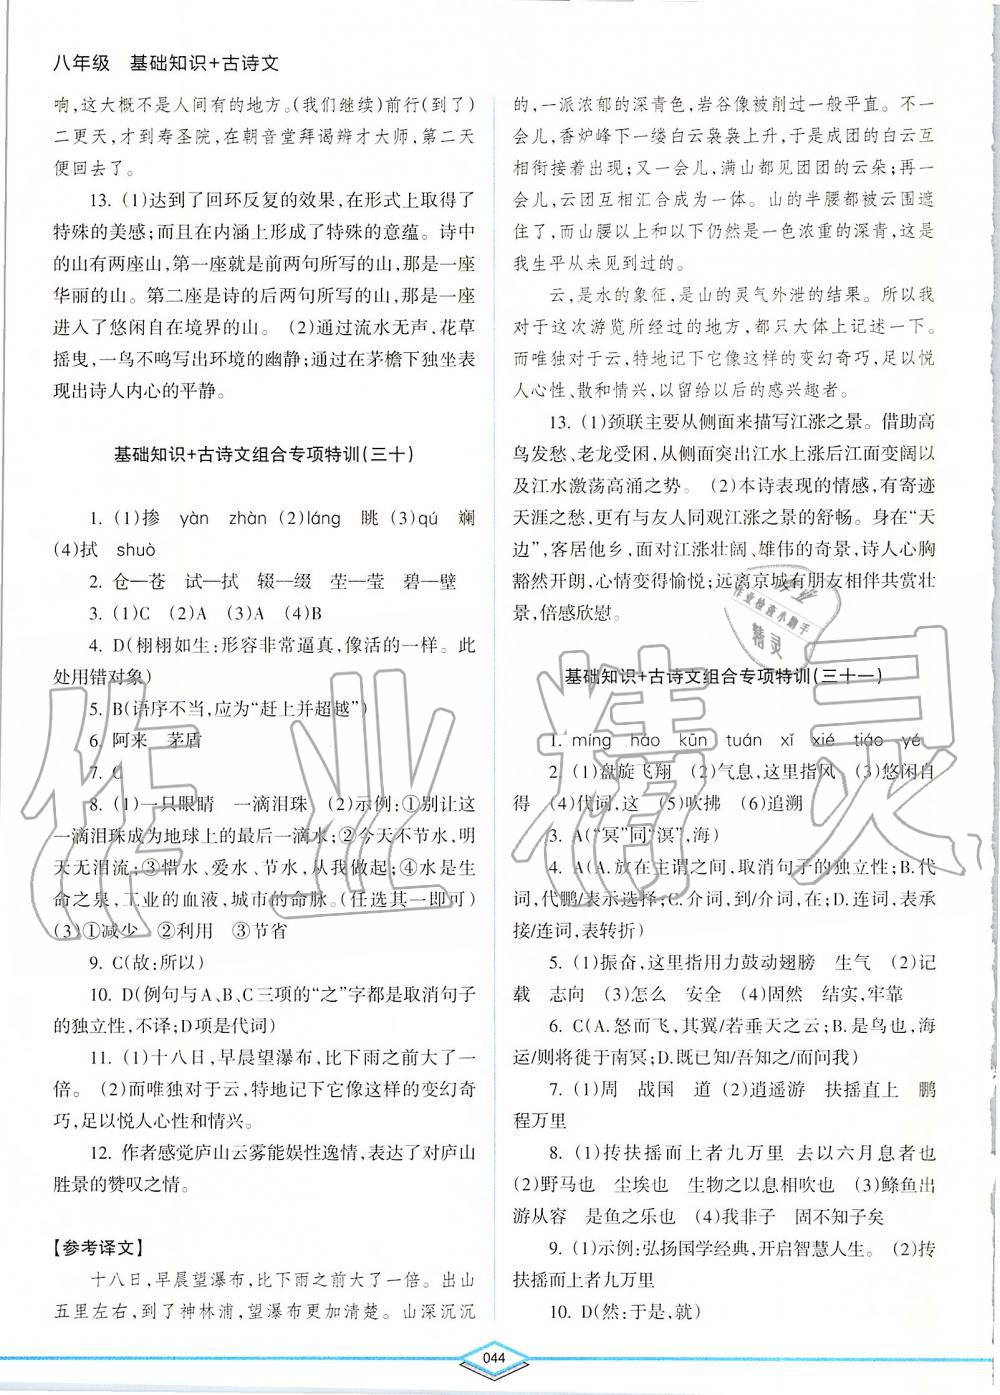 八年级　基础知识+古诗文
响,这大概不是人间有的地方。(我们继续)前行(到了)
二更天,才到寿圣院,在朝音堂拜谒辨才大师,第二天
便回去了。
13. (1)达到了回环反复的效果,在形式上取得了
特殊的美感;而且在内涵上形成了特殊的意蕴。诗中
的山有两座山,第一座就是前两句所写的山,那是一座
华丽的山。第二座是诗的后两句所写的山,那是一座
进入了悠闲自在境界的山。 (2)通过流水无声,花草
摇曳,一鸟不鸣写出环境的幽静;通过在茅檐下独坐表
现出诗人内心的平静。
基础知识+古诗文组合专项特训(三十)
1. (1)掺　yàn　zhàn (2)láng　眺 (3)qú　斓
(4)拭　shuò
2. 仓—苍　试—拭　辍—缀　茔—莹　碧—璧
3. (1)C　(2)A　(3)A　(4)B
4. D(栩栩如生:形容非常逼真,像活的一样。此
处用错对象)
5. B(语序不当,应为“赶上并超越”)
6. 阿来　茅盾
7. C
8. (1)一只眼睛　一滴泪珠　(2)示例:①别让这
一滴泪珠成为地球上的最后一滴水;②今天不节水,明
天无泪流;③惜水、爱水、节水,从我做起;④水是生
命之泉、工业的血液,城市的命脉。(任选其一即可)
(3)①减少　②利用　③节省
9. C(故:所以)
10. D(例句与A、B、C三项的“之”字都是取消句子
的独立性,不译;D项是代词)
11. (1)十八日,早晨望瀑布,比下雨之前大了一
倍。 (2)而唯独对于云,特地记下它像这样的变幻奇
巧,足以悦人心性和情兴。
12. 作者感觉庐山云雾能娱性逸情,表达了对庐山
胜景的赞叹之情。
【参考译文】
十八日,早晨望瀑布,比下雨之前大了一倍。出山
五里左右,到了神林浦,望瀑布更加清楚。山深沉沉
的,一派浓郁的深青色,岩谷像被削过一般平直。不一
会儿,香炉峰下一缕白云袅袅上升,于是成团的白云互
相衔接着出现;又一会儿,满山都见团团的云朵;再一
会儿,云团互相汇合成为一体。山的半腰都被云围遮
住了,而山腰以上和以下仍然是一色浓重的深青,这是
我生平从未见到过的。
云,是水的象征,是山的灵气外泄的结果。所以我
对于这次游览所经过的地方,都只大体上记述一下。
而唯独对于云,特地记下它像这样的变幻奇巧,足以悦
人心性、散和情兴,以留给以后的感兴趣者。
13. (1)颈联主要从侧面来描写江涨之景。借助高
鸟发愁、老龙受困,从侧面突出江水上涨后江面变阔以
及江水激荡高涌之势。 (2)本诗表现的情感,有寄迹
天涯之愁,更有与友人同观江涨之景的舒畅。身在“天
边”,客居他乡,面对江涨壮阔、雄伟的奇景,诗人心胸
豁然开朗,心情变得愉悦;远离京城有朋友相伴共赏壮
景,倍感欣慰。
作业检查小助手
精灵
基础知识+古诗文组合专项特训(三十一)
1. míng　hāo　kūn　tuán　xǐ　xié　tiáo　yé
2. (1)盘旋飞翔　(2)气息,这里指风　(3)悠闲自
得　(4)代词,这　(5)吹拂　(6)追溯
3. A(“冥”同“溟”,海)
4. A(A.放在主谓之间,取消句子的独立性;B.代
词,代鹏/表示选择;C.介词,到/介词,在;D.连词,表承
接/连词,表转折)
5. (1)振奋,这里指用力鼓动翅膀　生气　(2)记
载　志向　(3)怎么　安全　(4)固然　结实,牢靠
6. C(A.怒而飞,其翼/若垂天之云;B.是鸟也,海
运/则将徙于南冥;D.既已知/吾知之/而问我)
7. (1)周　战国　道　(2)逍遥游　扶摇直上　鹏
程万里
8. (1)抟扶摇而上者九万里　去以六月息者也
(2)野马也　尘埃也　生物之以息相吹也　(3)鲦鱼出
游从容　是鱼之乐也　(4)我非子　固不知子矣
9. (1)示例:弘扬国学经典,开启智慧人生。 (2)抟
扶摇而上者九万里
10. D(然:于是,就)
作业精灵
044